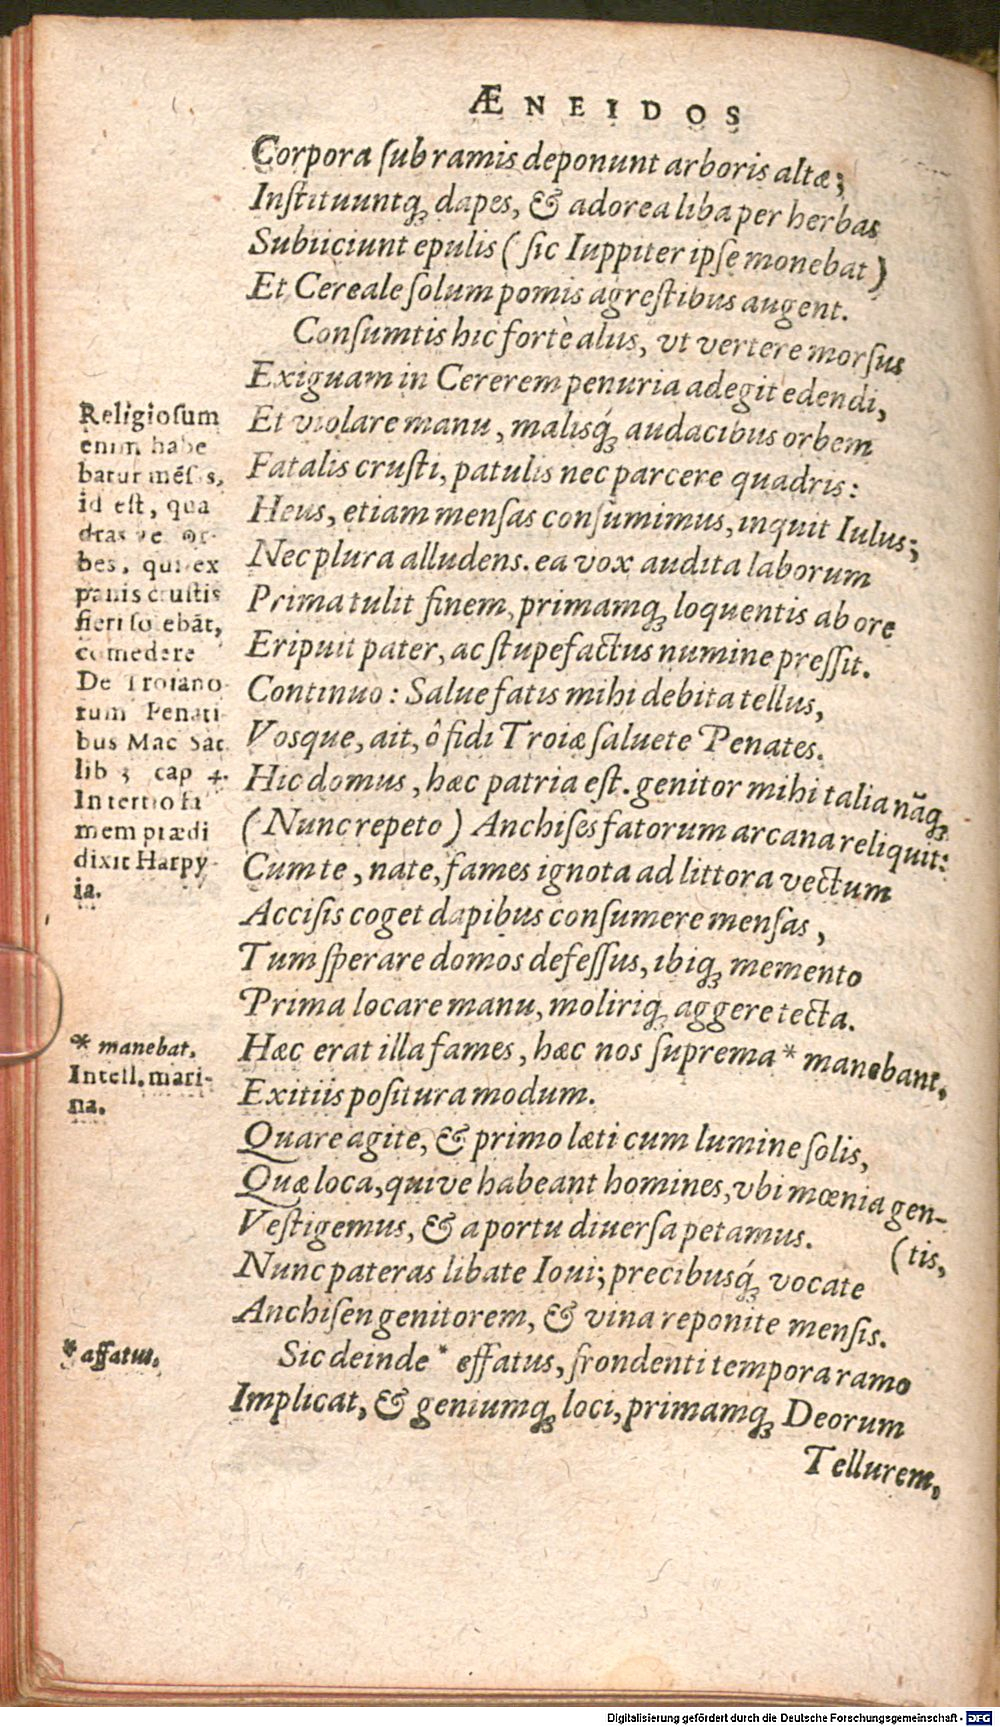 ÆNEIDOS
Corpora ſub ramis deponunt arboris altæ;
Inſtituuntq́ꝫ dapes, & adorea liba per herbas
Subiiciunt epulis ( ſic Iuppiter ipſe monebat )
Et Cereale ſolum pomis agreſtibus augent.
Conſumtis hic fortè aliis, vt vertere morſus
Exiguam in Cererem penuria adegit edendi,
Et violare manu, malisq́ꝫ audacibus orbem
Fatalis cruſti, patulis nec parcere quadris:
Heus, etiam menſas conſumimus, inquit Iulus;
Nec plura alludens. ea vox audita laborum
Prima tulit finem, primamqꝫ loquentis ab ore
Eripuit pater, ac ſtupefactus numine preſſit.
Continuo: Salue fatis mihi debita tellus,
Vosque, ait, ô fidi Troiæ ſaluete Penates.
Hic domus, hæc patria eſt. genitor mihi talia nāqꝫ
( Nunc repeto ) Anchiſes fatorum arcana reliquit:
Cum te, nate, fames ignota ad littora vectum
Acciſis coget dapibus conſumere menſas,
Tum ſperare domos defeſſus, ibiqꝫ memento
Prima locare manu, moliriqꝫ aggere tecta.
Hæc erat illa fames, hæc nos ſuprema * manebant,
Exitiis poſitura modum.
Quare agite, & primo læti cum lumine ſolis,
Quæ loca, quive habeant homines, vbi mœnia gen-
Veſtigemus, & a portu diuerſa petamus. (tis,
Nunc pateras libate Ioui; precibusq́ꝫ vocate
Anchiſen genitorem, & vina reponite menſis.
Sic deinde * effatus, frondenti tempora ramo
Implicat, & geniumqꝫ loci, primamqꝫ Deorum
Tellurem,
Religioſum
enim habe
batur mēſas,
id eſt, qua
dras ve or-
bes, qui ex
panis cruſtis
fieri ſolebāt,
comedere
De Troiano-
rum Penati
bus Mac Sat.
lib 3 cap 4.
In tertio fa
mem prædi
dixit Harpy-
ia.
* manebat.
Intell. mari-
na.
* affatus.
Digitalisierung gefördert durch die Deutsche Forschungsgemeinschaft - DFG